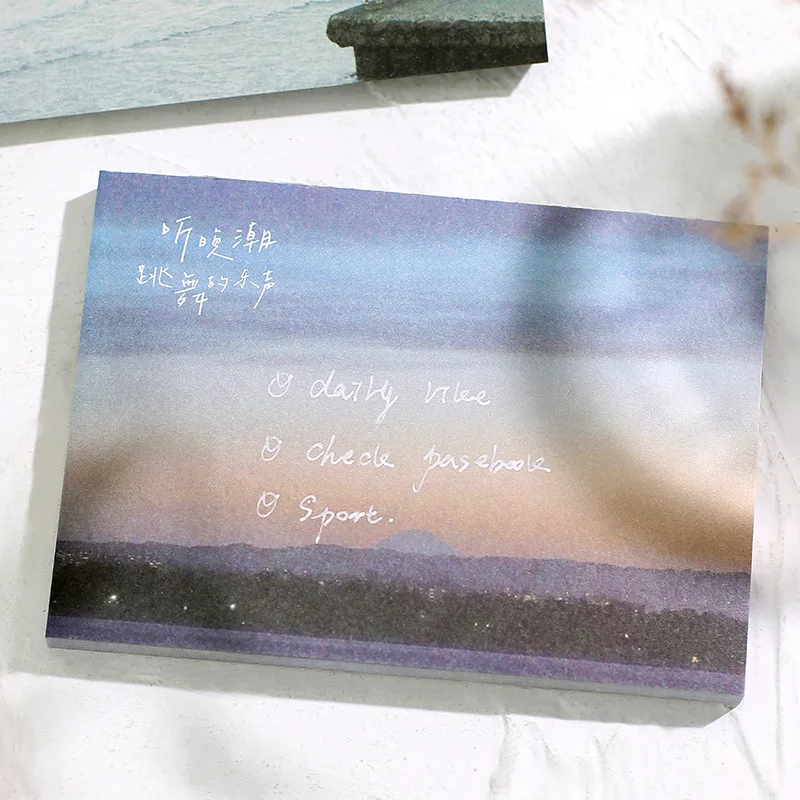 听晚潮
跳舞的乐声
daily like
check pasebook
Sport.